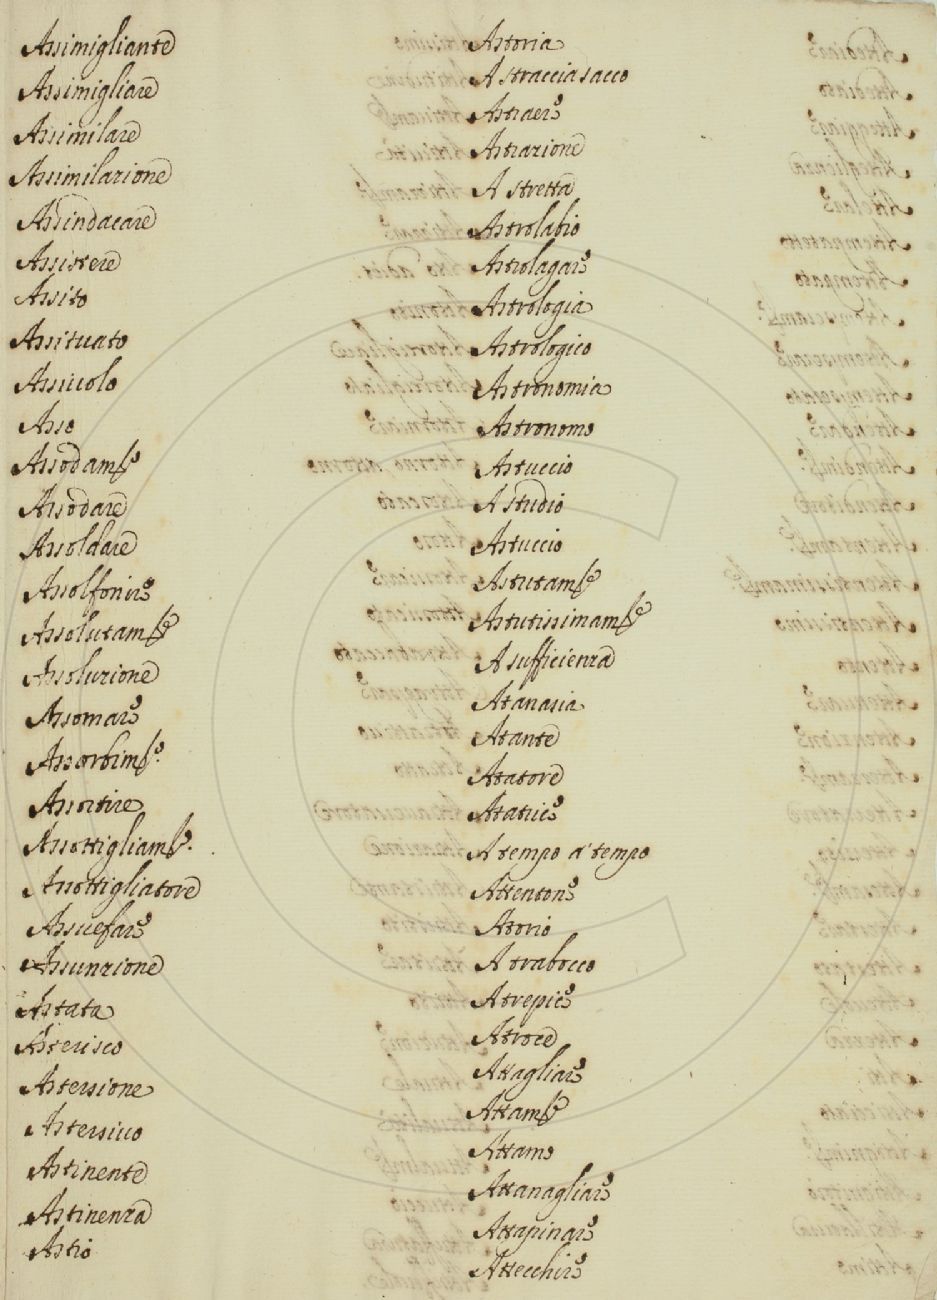 Assimigliante
Assimigliare
Assimilare
Assimilazione
Assindacare
Assistere
Assito
Assituato
Assiuolo
Asso
Assodam.te
Assodare
Assoldare
Assolfonire
Assolutam.te
Assoluzione
Assomare
Assorbim.to
Assortire
Assottigliam.to
Assottigliatore
Assuefare
Assunzione
Astata
Asterisco
Astersione
Astersivo
Astinente
Astinenza
Astio
Astoria
A stracciasacco
Astraere
Astrazione
A stretta
Astrolabio
Astrolagare
Astrologia
Astrologico
Astronomia
Astronomo
Astuccio
A studio
Astuccio
Astutam.te
Astutissimam.te
A sufficienza
Atanasia
Atante
Atatore
Atatrice
A tempo a tempo
Attentone
Atorio
A trabocco
Atrepice
Atroce
Attagliare
Attam.te
Attamo
Attanagliare
Attapinare
Attecchire